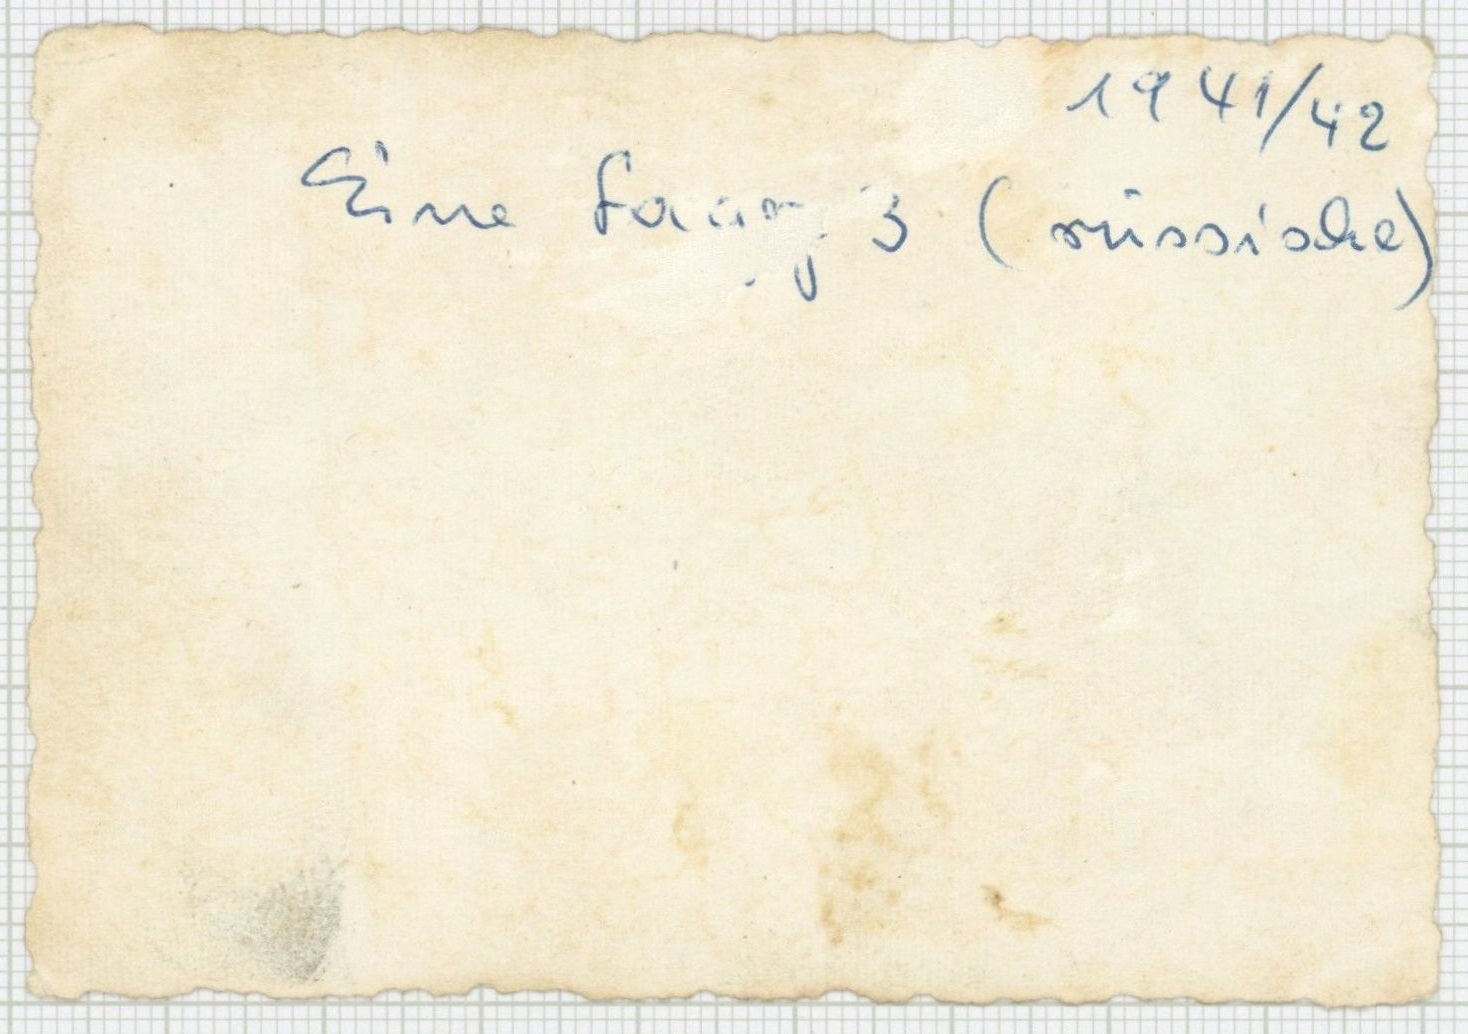 1941/42
Eine Lagg 3 (russische)